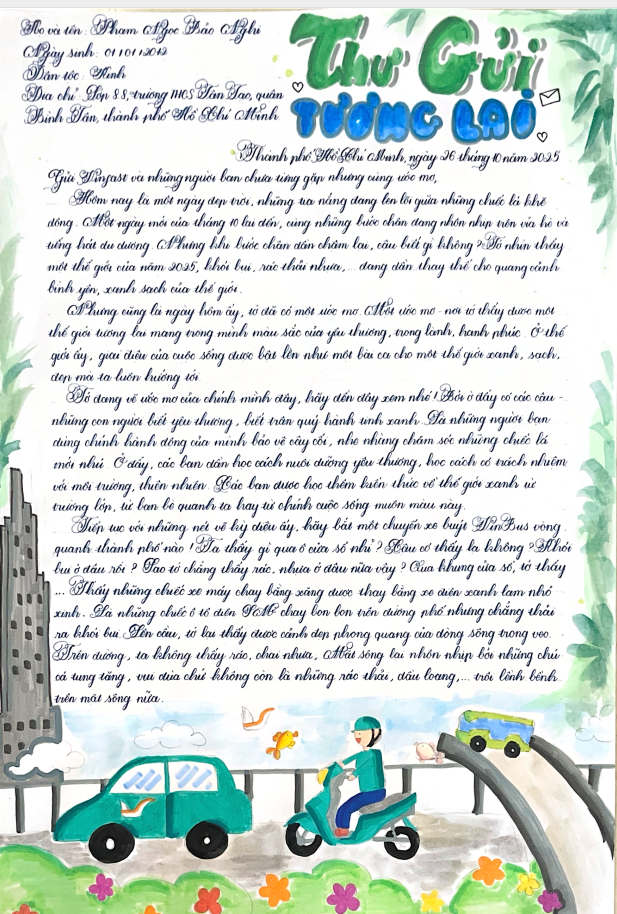 Họ và tên: Phạm Ngọc Bảo Nghi
Ngày sinh: 01/01/2012
Dân tộc: Kinh
Địa chỉ: Lớp 8.8, trường THCS Tân Tạo, quận
Bình Tân, thành phố Hồ Chí Minh
Thư Gửi
TƯƠNG LAI
Thành phố Hồ Chí Minh, ngày 26 tháng 10 năm 2025
Gửi Vinfast và những người bạn chưa từng gặp nhưng cùng ước mơ,
Hôm nay là một ngày đẹp trời, những tia nắng đang len lỏi giữa những chiếc lá khẽ
động. Một ngày mới của tháng 10 lại đến, cùng những bước chân đang nhộn nhịp trên vỉa hè và
tiếng hát du dương. Nhưng khi bước chân dần chậm lại, cậu biết gì không? Tớ nhìn thấy
một thế giới của năm 2025, khói bụi, rác thải nhựa,... đang dần thay thế cho quang cảnh
bình yên, xanh sạch của thế giới.
Nhưng cũng là ngày hôm ấy, tớ đã có một ước mơ. Một ước mơ - nơi tớ thấy được một
thế giới tương lai mang trong mình màu sắc của yêu thương, trong lành, hạnh phúc. Ở thế
giới ấy, giai điệu của cuộc sống được bật lên như một bài ca cho một thế giới xanh, sạch,
đẹp mà ta luôn hướng tới.
Tớ đang vẽ ước mơ của chính mình đây, hãy đến đây xem nhé! Bởi ở đấy có các cậu -
những con người biết yêu thương, biết trân quý hành tinh xanh. Là những người bạn
dùng chính hành động của mình bảo vệ cây cối, nhẹ nhàng chăm sóc những chiếc lá
mới nhú. Ở đấy, các bạn dần học cách nuôi dưỡng yêu thương, học cách có trách nhiệm
với môi trường, thiên nhiên. Các bạn được học thêm kiến thức về thế giới xanh từ
trường lớp, từ bạn bè quanh ta hay từ chính cuộc sống muôn màu này.
Tiếp tục với những nét vẽ kỳ diệu ấy, hãy bắt một chuyến xe buýt VinBus vòng
quanh thành phố nào! Ta thấy gì qua ô cửa sổ nhỉ? Cậu có thấy lạ không? Khói
bụi ở đâu rồi? Sao tớ chẳng thấy rác, nhựa ở đâu nữa vậy? Qua khung cửa sổ, tớ thấy
... Thấy những chiếc xe máy chạy bằng xăng được thay bằng xe điện xanh lam nhỏ
xinh. Là những chiếc ô tô điện chạy bon bon trên đường phố nhưng chẳng thải
ra khói bụi. Lên cầu, tớ lại thấy được cảnh đẹp phong quang của dòng sông trong veo.
Trên đường, ta không thấy rác, chai nhựa, Mặt sông lại nhộn nhịp bởi những chú
cá tung tăng, vui đùa chứ không còn là những rác thải, dầu loang,... trôi lềnh bềnh
trên mặt sông nữa.